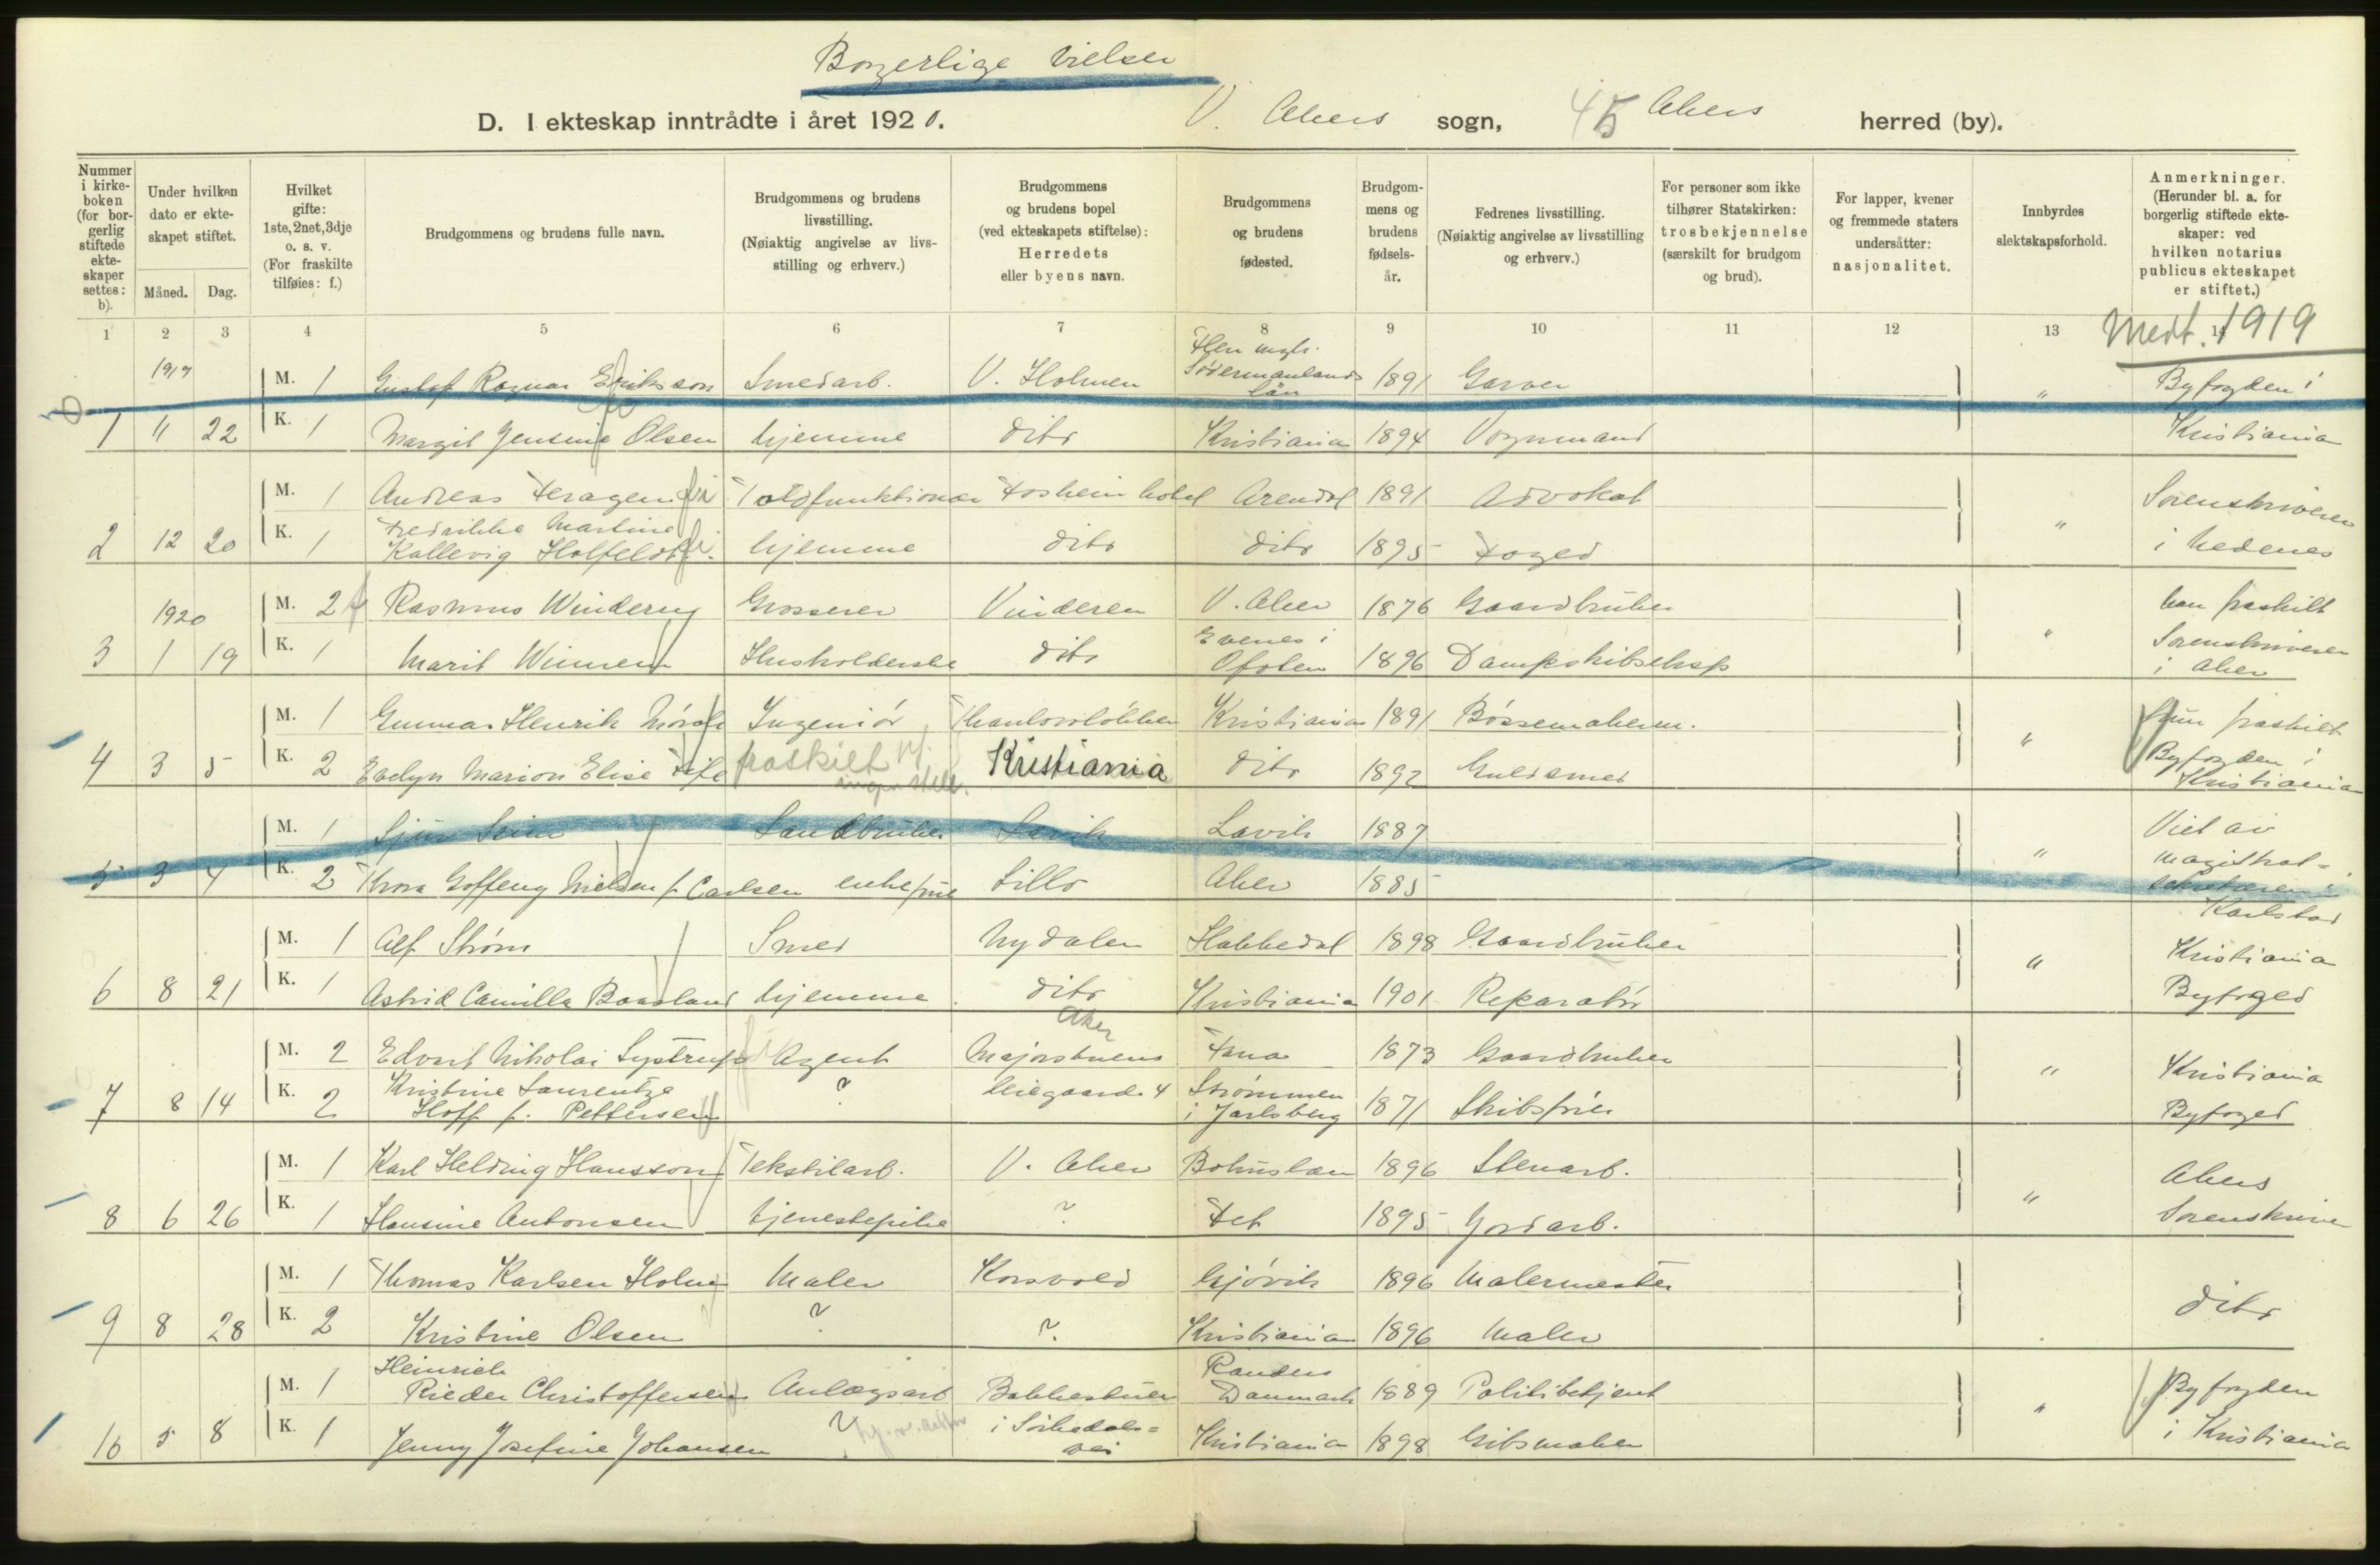 Borgerlige vielser
D. I ekteskap inntrådte i året 1920. V. Akers sogn, 45 Akers herred (by).
Nummer i kirke- boken (for bor- gerlig stiftede ekte- skaper settes: b).
Under hvilken dato er ekte- skapet stiftet.
Måned. Dag.
Hvilket gifte: 1ste, 2net, 3dje o. s. v. (For fraskilte tilføies: f.)
Brudgommens og brudens fulle navn.
Brudgommens og brudens livsstilling. (Nøiaktig angivelse av livs- stilling og erhverv.)
Brudgommens og brudens bopel (ved ekteskapets stiftelse): Herredets eller byens navn.
Brudgommens og brudens fødested.
Brudgom- mens og brudens fødsels- år.
Fedrenes livsstilling. (Nøiaktig angivelse av livsstilling og erhverv.)
For personer som ikke tilhører Statskirken: trosbekjennelse (særskilt for brudgom og brud).
For lapper, kvener og fremmede staters undersåtter: nasjonalitet.
Innbyrdes slektskapsforhold.
Anmerkninger. (Herunder bl. a. for borgerlig stiftede ekte- skaper: ved hvilken notarius publicus ekteskapet er stiftet.)
1 2 3 4 5 6 7 8 9 10 11 12 13 14
Medt. 1919
1919 M. 1 Gustaf Ragnar Eriksson Smedarb. V. Holmen Södermanlands län 1891 Garver " Byfogden i
b 1 11 22 K. 1 Margit Jensine Olsen hjemme ditto Kristiania 1894 Vognmand Kristiania
M. 1 Andreas Feragen Toldfunktionær Fosheim hotel Arendal 1891 Advokat Sorenskriveren
2 12 20 K. 1 Fredrikke Martine Kallevig Holfeldt hjemme ditto ditto 1895 Foged " i Nedenes
1920 M. 2 f Rasmus Winderen Grosserer Vinderen V. Aker 1876 Gaardbruker han fraskilt
3 1 19 K. 1 Marit Winnem Husholderske ditto Evenes i Ofoten 1896 Dampskibseksp " Sorenskriveren i Aker
M. 1 Gunnar Henrik Ingeniør Thaulowløkken Kristiania 1891 Bøssemakerm. hun fraskilt
4 3 5 K. 2 Evelyn Marion Elise fraskilt Kristiania ditto 1892 Guldsmed " Byfogden i Kristiania
M. 1 Sjur Seim Landbruker Lavik Lavik 1887 Viet av
5 3 4 K. 2 Thora Goffeng Nielsen f. Carlsen enkefrue Lillo Aker 1885 " magistrat= sekretæren i Karlstad
M. 1 Alf Strøm Smed Nydalen Stabbedal 1898 Gaardbruker Kristiania
6 8 21 K. 1 Astrid Camilla Baasland hjemme ditto Kristiania 1901 Reparatör " Byfoged
Aker
M. 2 Edvart Nikolai Systrup Agent Majorstuens Fana 1873 Gaardbruker Kristiania
7 8 14 K. 2 Kristine Laurentze Hoff f. Pettersen ? leiegaard 4 Strømmen i Jarlsberg 1871 Skibsfrier " Byfoged
M. 1 Karl Helding Hansson Tekstilarb. V. Aker Bohuslän 1896 Stenarb. Akers
8 6 26 K. 1 Hansine Antonsen tjenestepike ? Fet 1895 Jordarb. " Sorenskriver
M. 1 Thomas Karlsen Holm Maler Korsvold Gjøvik 1896 Malermester
9 8 28 K. 2 Kristine Olsen ? ? Kristiania 1896 Maler ditto
M. 1 Heinrich Rieder Christoffersen Anlægsarb Bakkestuen Randers Danmark 1889 Politibetjent Byfogden
10 5 8 K. 1 Jenny Josefine Johansen ? i Sørkedals= vei Kristiania 1898 Gibsmaker " i Kristiania